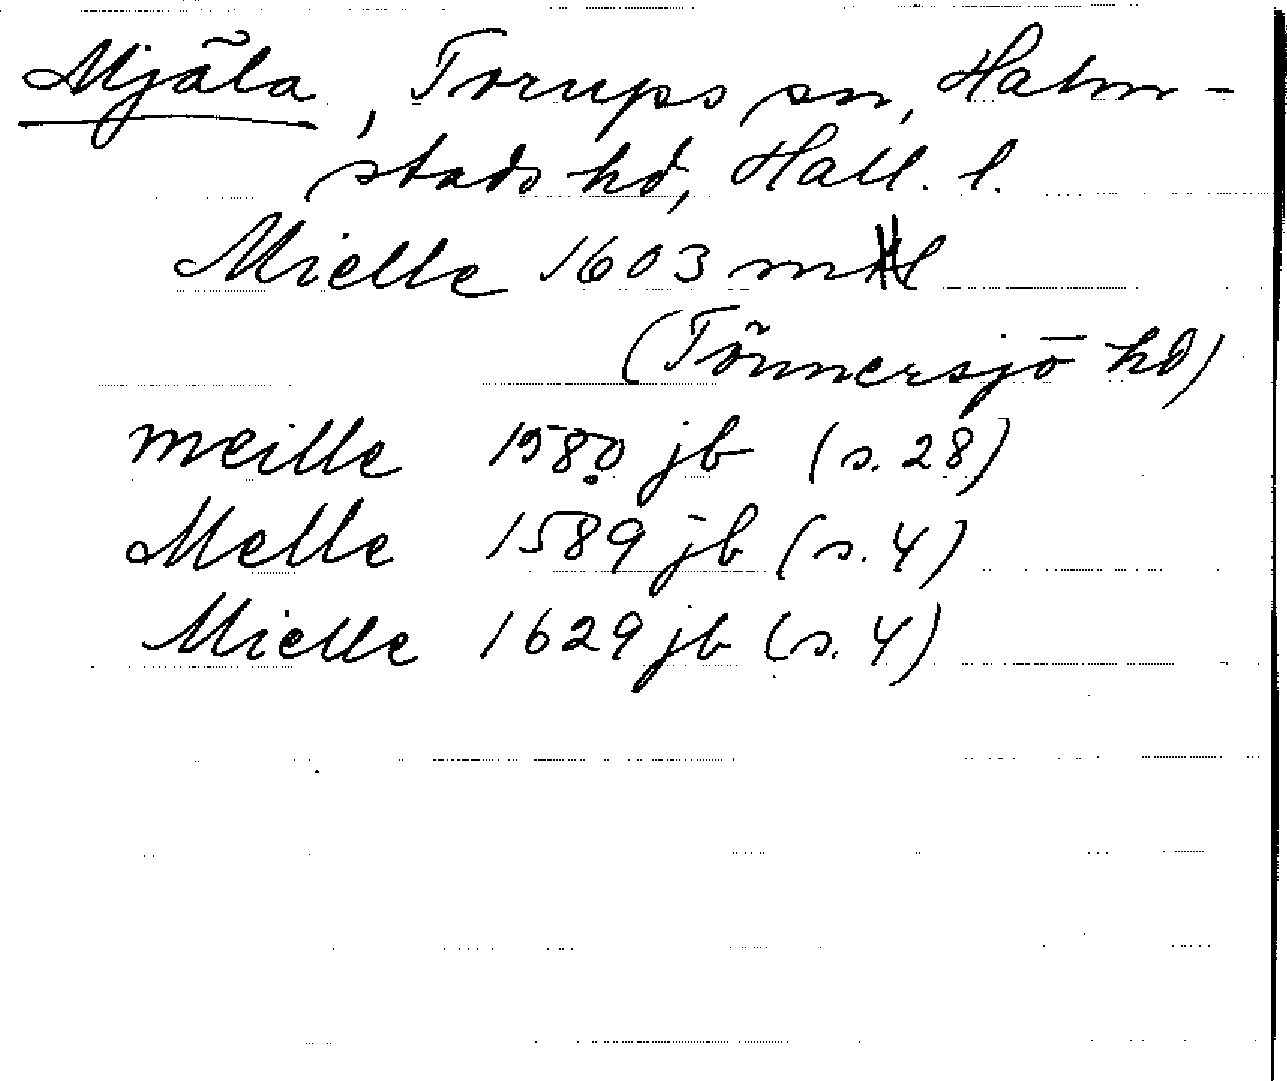 Mjäla, Torups sn, Halm-
stads hd, Hall. l.
Mielle 1603 ml
(Tönnersjö hd)
meille 1580 jb (s. 28)
Melle 1589 jb (s. 4)
Mielle 1629 jb (s. 4)